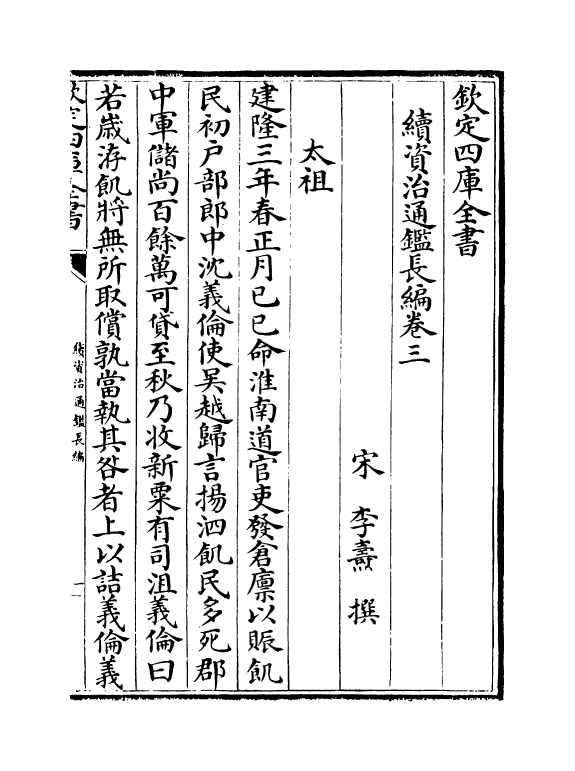 欽定四庫全書
續資治通鑑長編卷三
宋 李燾 撰
太祖
建隆三年春正月己巳命淮南道官吏發倉廩以賑飢
民初户部郎中沈義倫使吴越歸言揚泗飢民多死郡
中軍儲尚百餘萬可貸至秋乃收新粟有司沮義倫曰
若歲洊飢將無所取償孰當執其咎者上以詰義倫義
欽定四庫全書
續資治通鑑長編
一